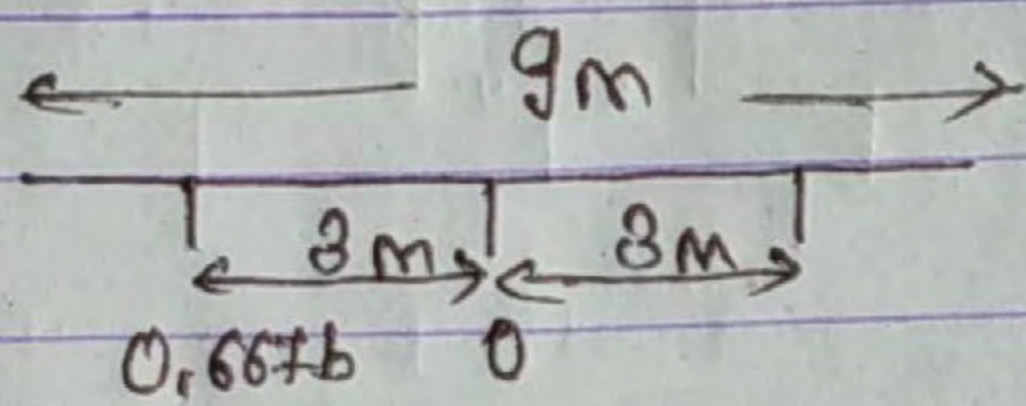 9m
3m 3m
0,667b 0